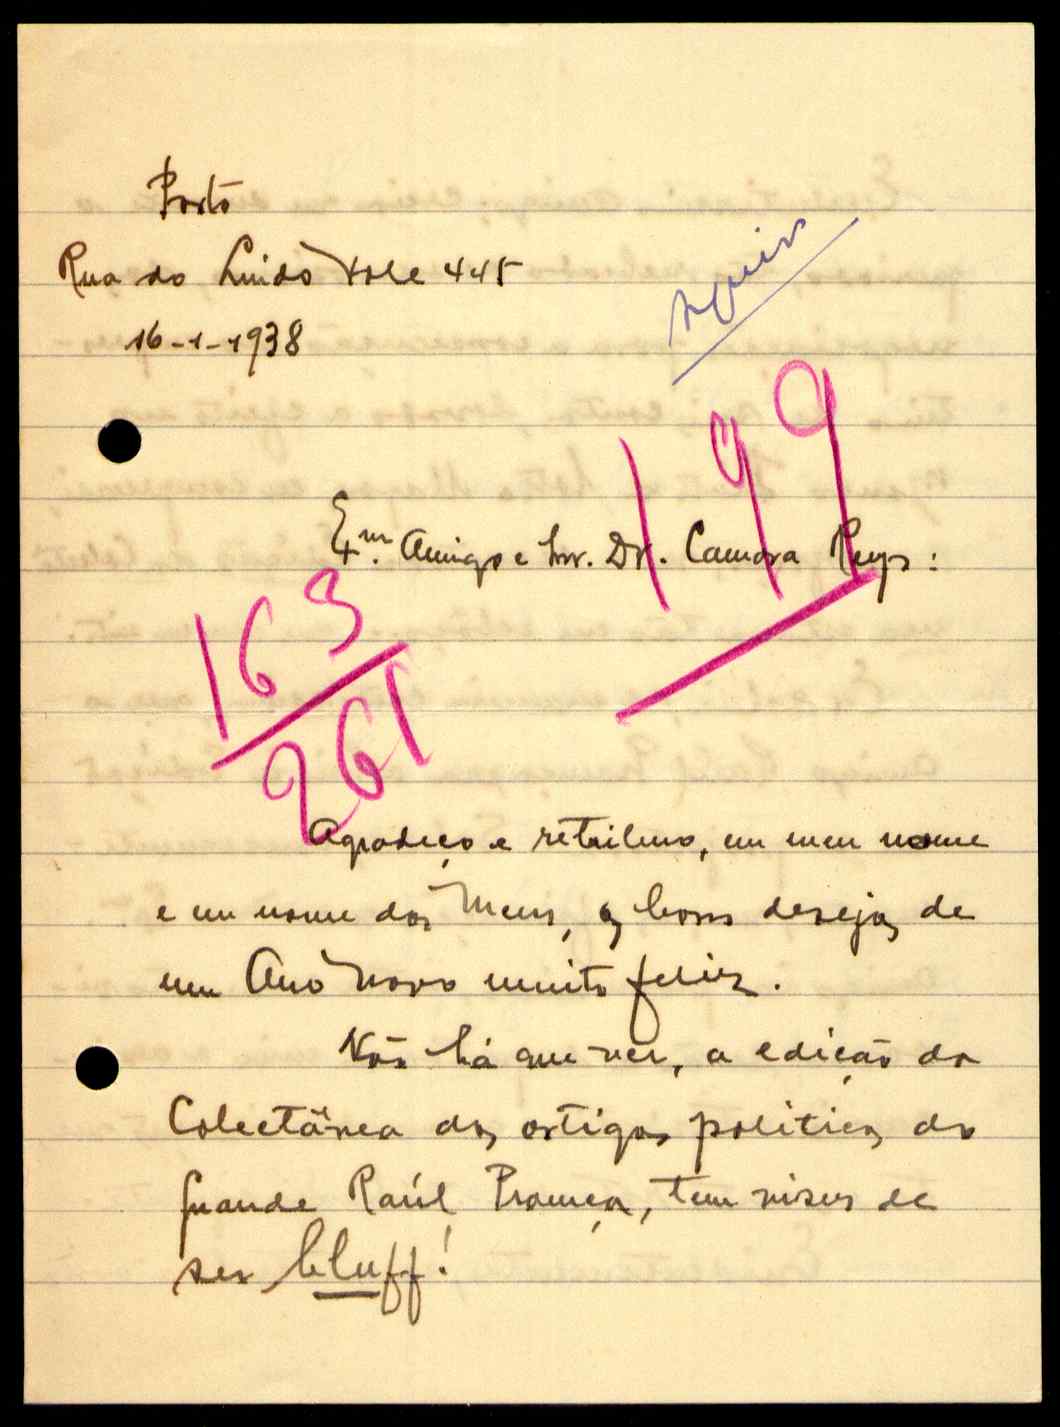 Porto
Rua do Lindo Vale 445
16-1-1938
199
Exmº. Amigo e Snr. Dr. Camara Reys:
163
261
Agradeço e retribuo, em meu nome
e em nome dos Meus, os bons desejos de
um Ano Novo muito feliz.
Não há que ver, a edição da
Colectânea dos artigos politicos do
grande Raúl Proença, tem visos de
ser bluff!